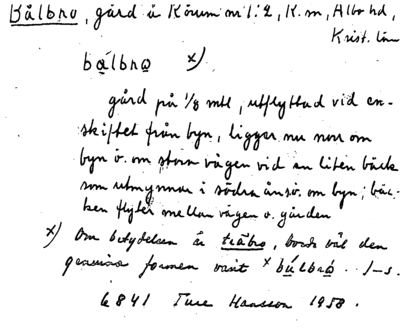 Bålbro, gård å Körum nr 1:2, K. m, Albo hd,
Krist. län
bålbro x)
gård på 1/8 mtl, utflyttad vid en-
skiftet från byn, ligger nu norr om
byn ö. om stora vägen vid en liten bäck
som utmynnar i södra ån sö. om byn; bäc-
ken flyter mellan vägen o. gården
x) Om betydelsen är träbro, borde väl den
genuina formen varit x bålbro. 1-s.
6841 Ture Hansson 1958.